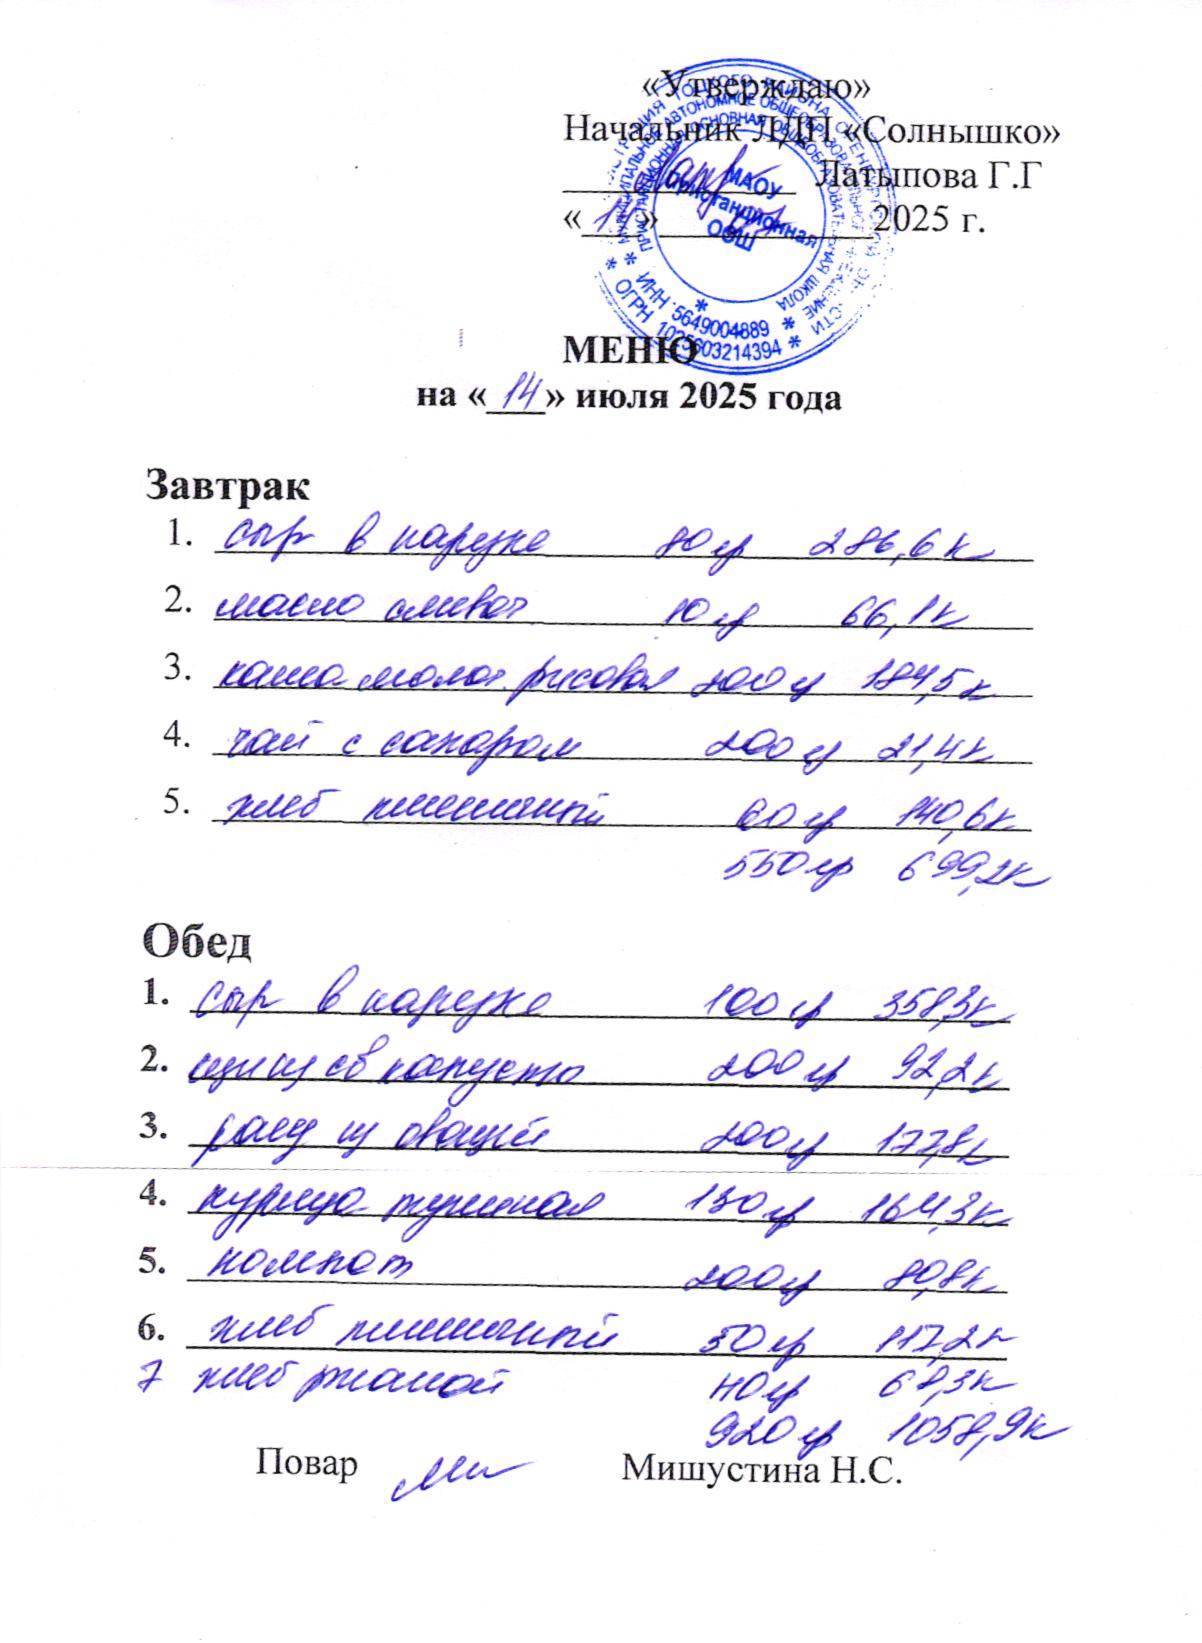 «Утверждаю»
Начальник ЛДП «Солнышко»
Латыпова Г.Г
«14» 07 2025 г.
МАОУ
Пристанционная
ООШ
* ИНН 5649004889 *
* ОГРН 1025603214394 *
МЕНЮ
на «14» июля 2025 года
Завтрак
1. сыр в нарезке 80 гр 286,6 к
2. масло сливоч 10 гр 66,1 к
3. каша молоч. рисовая 200 гр 184,5 к
4. чай с сахаром 200 гр 21,4 к
5. хлеб пшеничный 60 гр 140,6 к
550 гр 699,2 к
Обед
1. сыр в нарезке 100 гр 358,3 к
2. щи из св капусты 200 гр 92,2 к
3. рагу из овощей 200 гр 177,8 к
4. курица тушеная 130 гр 164,3 к
5. компот 200 гр 80,8 к
6. хлеб пшеничный 50 гр 117,2 к
7 хлеб ржаной 40 гр 68,3 к
920 гр 1058,9 к
Повар Мишустина Н.С.